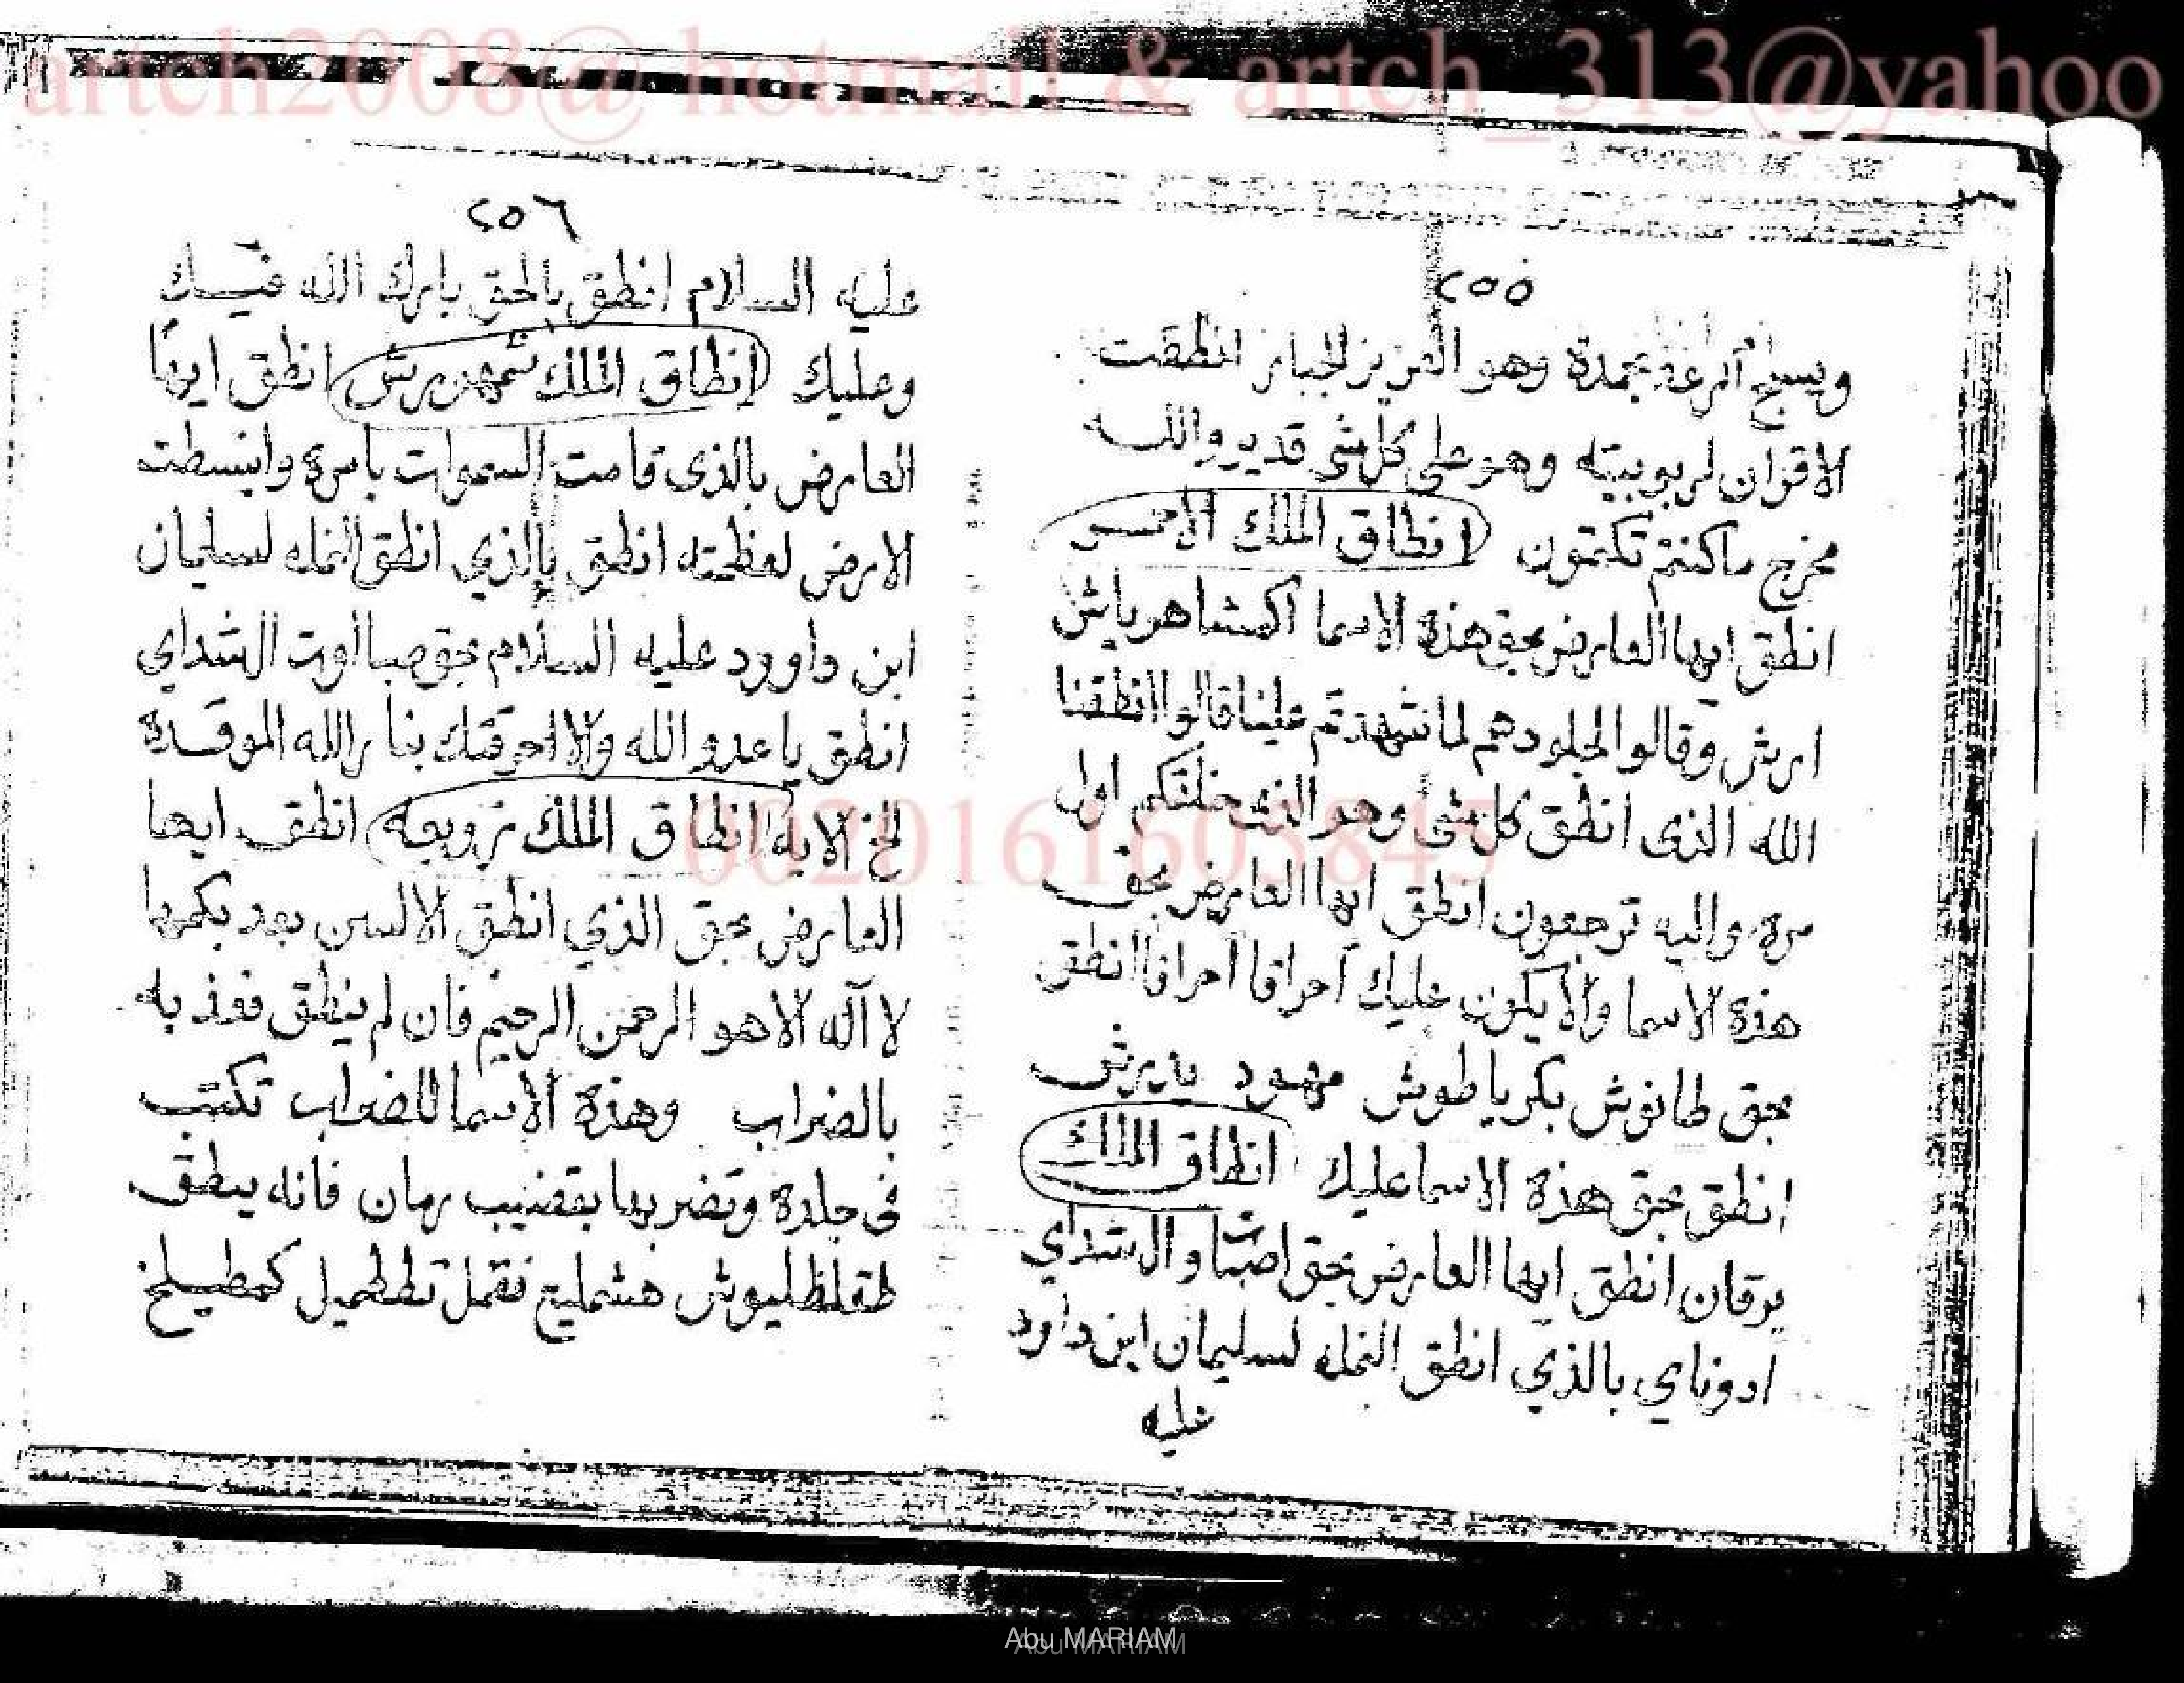 artch2008@ hotmail & artch_313@yahoo
٢٥٥
ويسبح الرعد بحمده وهو العزيز الجبار انطقت
الاقوان لربوبيته وهو على كل شى قدير والله
مخرج ماكنتم تكتمون انطاق الملك الاحمر
انطق ايها العارض بحق هذه الاسما اكمشاهرياش
ارش وقالوا لجلودهم لما شهدتم علينا قالوا انطقنا
الله الذى انطق كل شئ وهو الذى خلقكم اول
مرة واليه ترجعون انطق ايها العارض بحق
هذه الاسما والا يكون عليك احراقا احراقا انطق
بحق طانوش بكرياطوش مهود يديرش
انطق بحق هذه الاسما عليك انطاق الملك
برقان انطق ايها العارض بحق اصباوال شداي
ادوناي بالذي انطق النمله لسليمان ابن داود
عليه
٢٥٦
عليه السلام انطق بالحق بارك الله فيك
وعليك انطاق الملك شمهورش انطق ايها
العارض بالذى قامت السموات بامره وانبسطت
الارض لعظمته انطق بالذي انطق النمله لسليمان
ابن داوود عليه السلام بحق صبااوت الشداي
انطق ياعدوالله والا احرقتك بنار الله الموقدة
الخ الايه انطاق الملك زوبعه انطق ايها
العارض بحق الذي انطق الالسن بعد بكمها
لا اله الا هو الرحمن الرحيم فان لم ينطق فوذ به
بالضراب وهذه الاسما للضراب تكتب
فى جلدة وتضربها بقضيب رمان فانه ينطق
طقلظليوش هشمليع نقمل تططميل كمطيلخ
00201616053845
Abu MARIAM